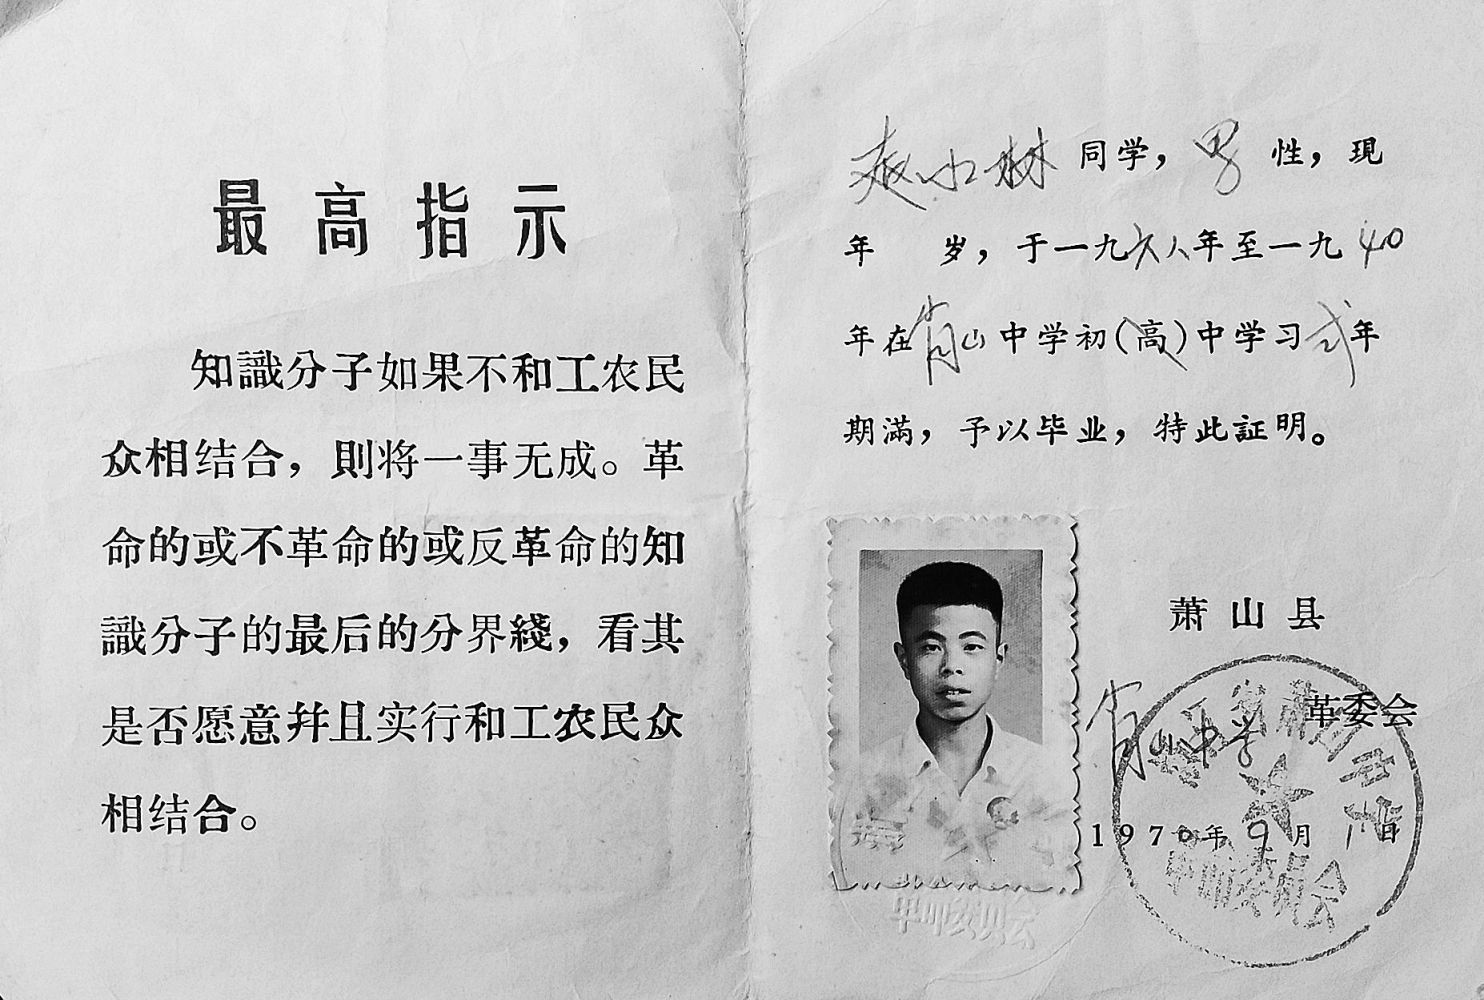 最高指示
知識分子如果不和工农民
众相结合，則将一事无成。革
命的或不革命的或反革命的知
識分子的最后的分界綫，看其
是否愿意幷且实行和工农民众
相结合。
水林同学，男性，現
年 岁，于一九六八年至一九70
年在肖山中学初(高)中学习弍年
期滿，予以毕业，特此証明。
萧山县
肖山中学革委会
1970年9月1日
革命委员会
革命委员会